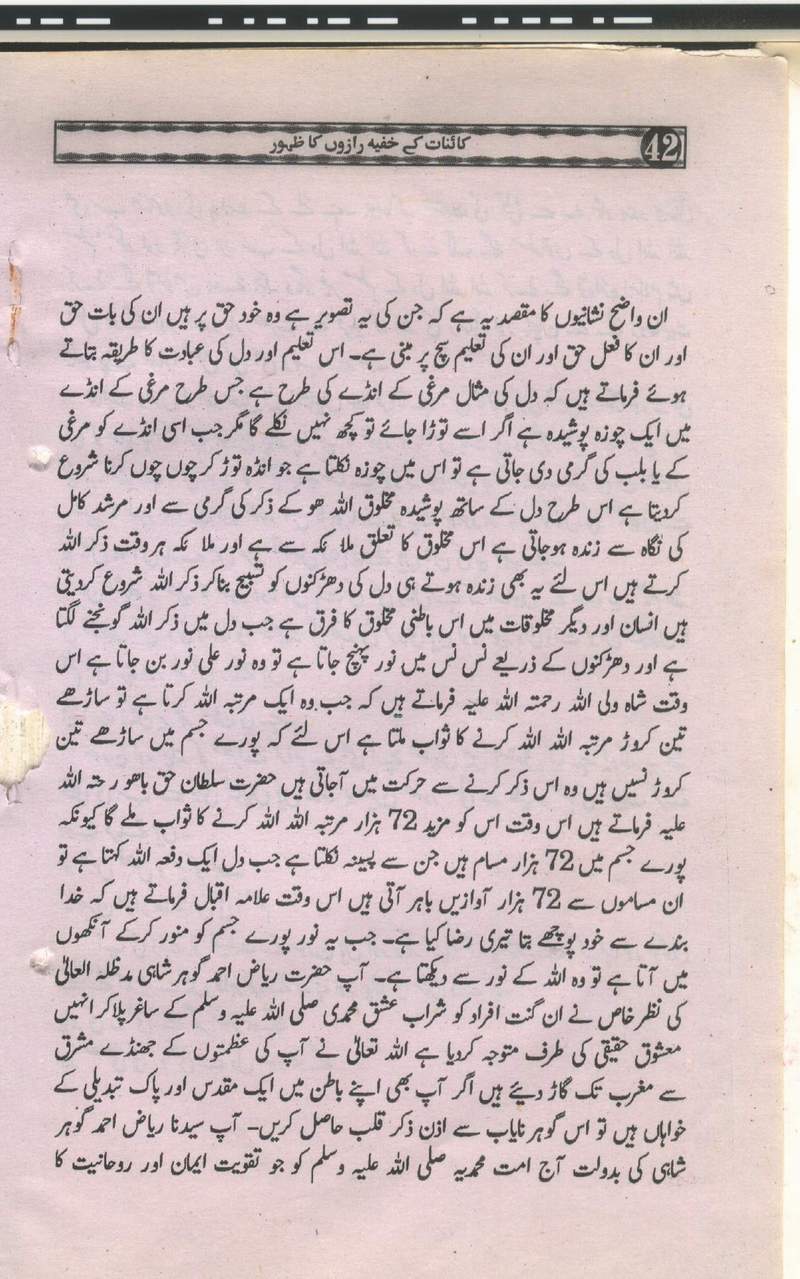 42
کائنات کے خفیہ رازوں کا ظہور
ان واضح نشانیوں کا مقصد یہ ہے کہ جن کی یہ تصویر ہے وہ خود حق پر ہیں ان کی بات حق
اور ان کا فعل حق اور ان کی تعلیم سچ پر مبنی ہے۔ اس تعلیم اور دل کی عبادت کا طریقہ بتاتے
ہوئے فرماتے ہیں کہ دل کی مثال مرغی کے انڈے کی طرح ہے جس طرح مرغی کے انڈے
میں ایک چوزہ پوشیدہ ہے اگر اسے توڑا جائے تو کچھ نہیں نکلے گا مگر جب اسی انڈے کو مرغی
کے یا بلب کی گرمی دی جاتی ہے تو اس میں چوزہ نکلتا ہے جو انڈہ توڑ کر چوں چوں کرنا شروع
کردیتا ہے اس طرح دل کے ساتھ پوشیدہ مخلوق اللہ ھو کے ذکر کی گرمی سے اور مرشد کامل
کی نگاہ سے زندہ ہوجاتی ہے اس مخلوق کا تعلق ملائکہ سے ہے اور ملائکہ ہر وقت ذکر اللہ
کرتے ہیں اس لئے یہ بھی زندہ ہوتے ہی دل کی دھڑکنوں کو تسبیح بناکر ذکر اللہ شروع کردیتی
ہیں انسان اور دیگر مخلوقات میں اس باطنی مخلوق کا فرق ہے جب دل میں ذکر اللہ گونجنے لگتا
ہے اور دھڑکنوں کے ذریعے نس نس میں نور پہنچ جاتا ہے تو وہ نور علی نور بن جاتا ہے اس
وقت شاہ ولی اللہ رحمتہ اللہ علیہ فرماتے ہیں کہ جب وہ ایک مرتبہ اللہ کرتا ہے تو ساڑھے
تین کروڑ مرتبہ اللہ اللہ کرنے کا ثواب ملتا ہے اس لئے کہ پورے جسم میں ساڑھے تین
کروڑ نسیں ہیں وہ اس ذکر کرنے سے حرکت میں آجاتی ہیں حضرت سلطان حق باھو رحتہ اللہ
علیہ فرماتے ہیں اس وقت اس کو مزید 72 ہزار مرتبہ اللہ اللہ کرنے کا ثواب ملے گا کیونکہ
پورے جسم میں 72 ہزار مسام ہیں جن سے پسینہ نکلتا ہے جب دل ایک دفعہ اللہ کہتا ہے تو
ان مساموں سے 72 ہزار آوازیں باہر آتی ہیں اس وقت علامہ اقبال فرماتے ہیں کہ خدا
بندے سے خود پوچھے بتا تیری رضا کیا ہے۔ جب یہ نور پورے جسم کو منور کرکے آنکھوں
میں آتا ہے تو وہ اللہ کے نور سے دیکھتا ہے۔ آپ حضرت ریاض احمد گوہر شاہی مدظلہ العالیٰ
کی نظر خاص نے ان گنت افراد کو شراب عشق محمدی صلی اللہ علیہ وسلم کے ساغر پلاکر انہیں
معشوق حقیقی کی طرف متوجہ کردیا ہے اللہ تعالیٰ نے آپ کی عظمتوں کے جھنڈے مشرق
سے مغرب تک گاڑ دیئے ہیں اگر آپ بھی اپنے باطن میں ایک مقدس اور پاک تبدیلی کے
خواہاں ہیں تو اس گوہر نایاب سے اذن ذکر قلب حاصل کریں۔ آپ سیدنا ریاض احمد گوہر
شاہی کی بدولت آج امت محمدیہ صلی اللہ علیہ وسلم کو جو تقویت ایمان اور روحانیت کا